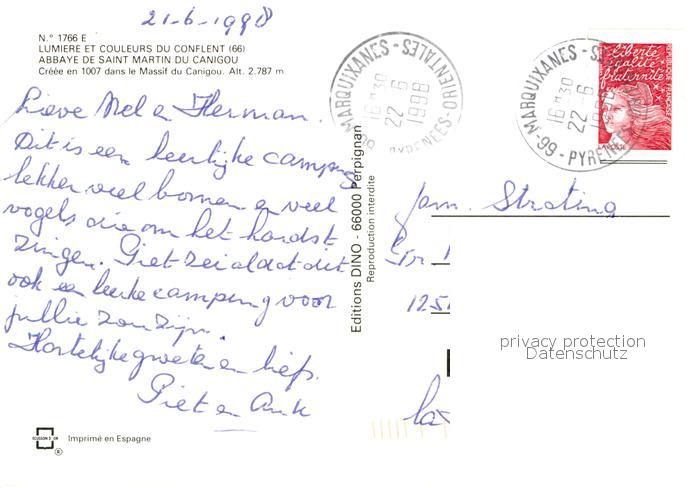 21-6-1998
N.° 1766 E
LUMIERE ET COULEURS DU CONFLENT (66)
ABBAYE DE SAINT MARTIN DU CANIGOU
Créée en 1007 dans le Massif du Canigou. Alt. 2.787 m
Lieve Nel en Herman.
Dit is een heerlijke camping
lekker veel bomen en veel
vogels die om het hardst
zingen. Piet zei al dat dit
ook een leuke camping voor
jullie zou zijn.
Hartelijke groeten en liefs.
Piet en Ank
Imprimé en Espagne
Editions DINO - 66000 Perpignan
Reproduction interdite
MARQUIXANES - 66 PYRENEES-ORIENTALES
16H30
22-6
1998
MARQUIXANES - 66 - PYRENE
16H30
22-6
Liberté
égalité
fraternité
LA POSTE
Fam. Strating
1251
privacy protection
Datenschutz